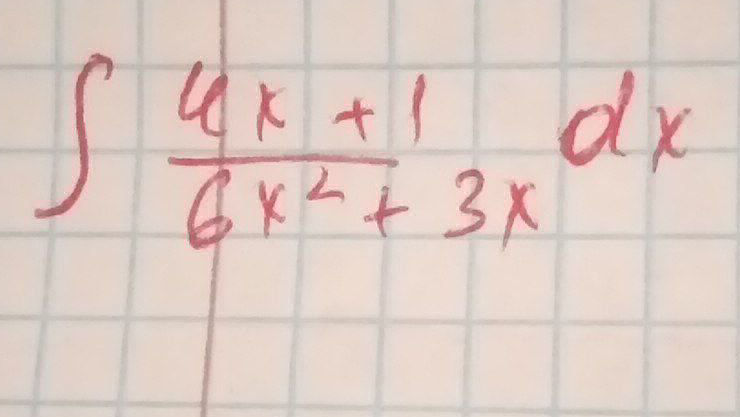 ∫ (4x + 1)/(6x² + 3x) dx